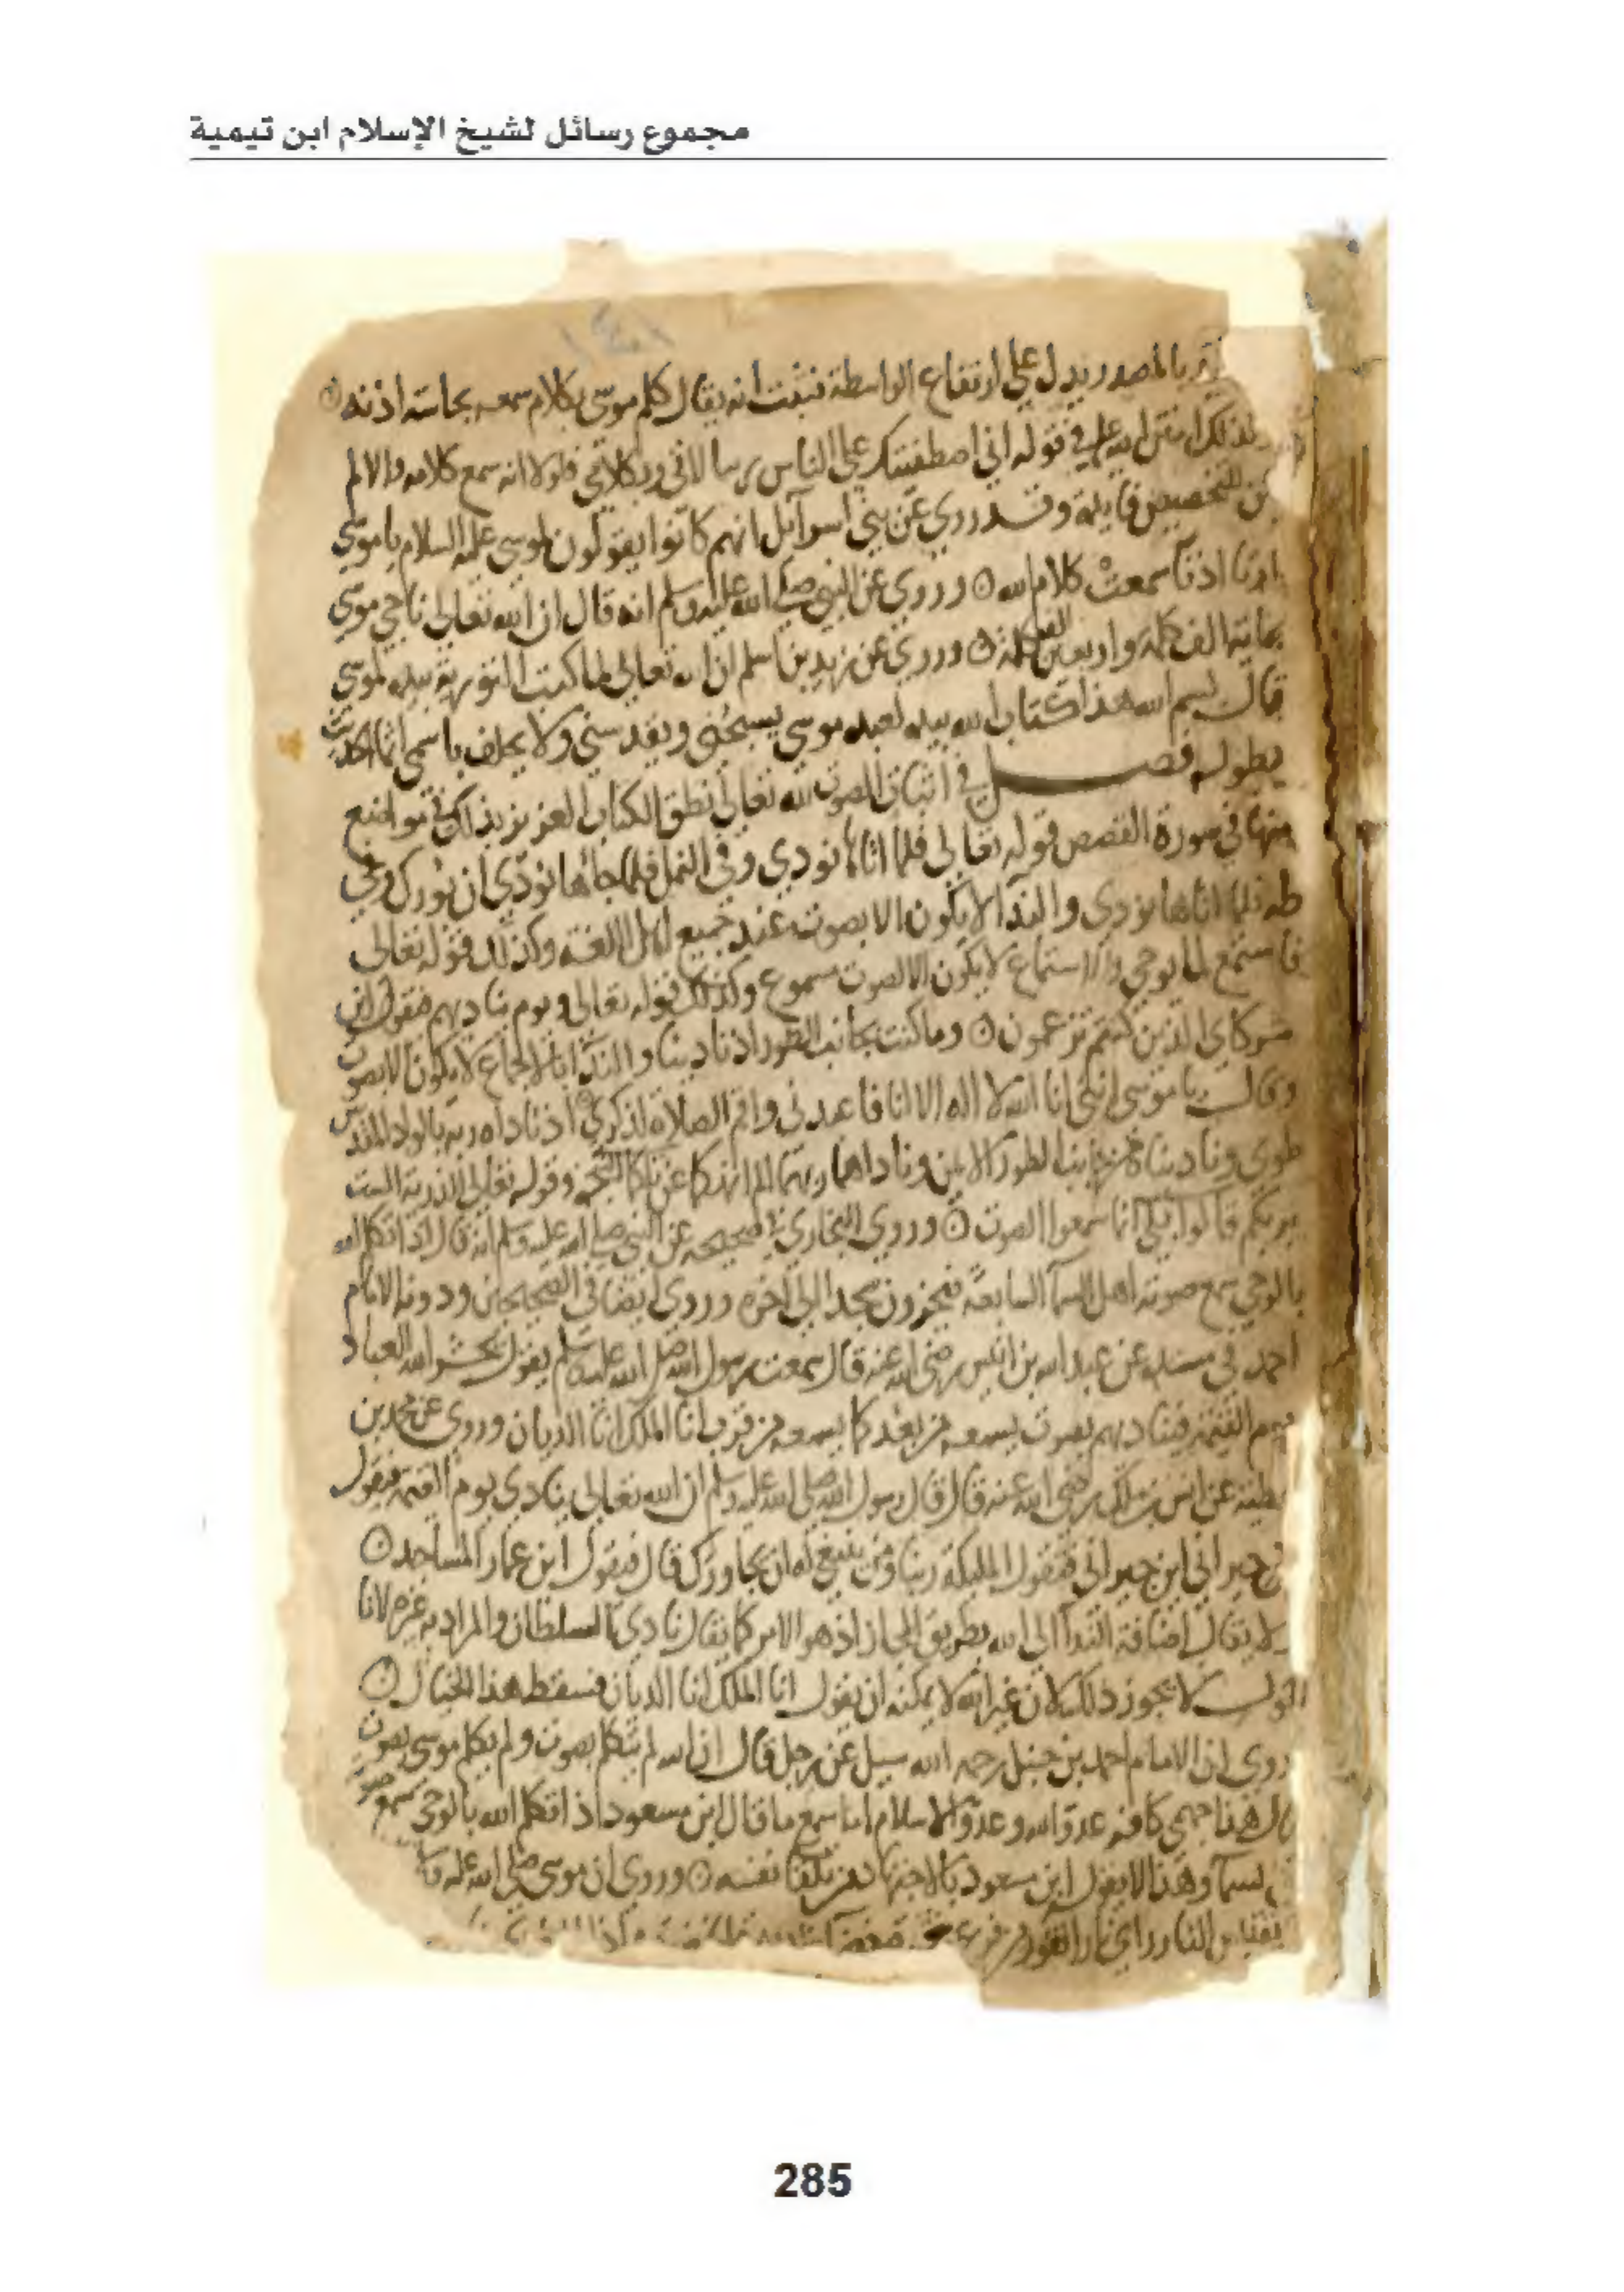 مجموع رسائل لشيخ الإسلام ابن تيمية
بالمصدر يدل على ارتفاع الواسطة فثبت انه يقال كلم موسى بكلام سمعه بحاسة اذنه
في قوله اني اصطفيتك على الناس برسالاتي وبكلامي فلولا انه سمع كلامه والا لم
يكن للتخصيص فايدة وقد روي عن بني اسرآيل انهم كانوا يقولون لموسى عليه السلام يا موسى
اذنا سمعت كلام الله ۞ وروي عن النبي صلى الله عليه وسلم انه قال ان الله تعالى ناجى موسى
بماية الف كلمة واربعين الف كلمة ۞ وروي عن زيد بن اسلم ان الله تعالى لما كتب التورية بيده لموسى
قال بسم الله هذا كتاب الله بيده لعبده موسى يسبحني ويقدسني ولا يحلف باسمي اثما الحديث
بطوله فصل في اثبات الصوت لله تعالى نطق الكتاب العزيز بذلك في مواضع
منها في سورة القصص قوله تعالى فلما اتاها نودي وفي النمل فلما جاءها نودي ان بورك وفي
طه فلما اتاها نودي والندآ لا يكون الا بصوت عند جميع اهل اللغة وكذلك قوله تعالى
فاستمع لما يوحى والاستماع لا يكون الا لصوت مسموع وكذلك قوله تعالى ويوم يناديهم فيقول اين
شركاي الذين كنتم تزعمون ۞ وما كنت بجانب الطور اذ نادينا والندآ بالاجماع لا يكون الا بصوت
وقال يا موسى انني انا الله لا اله الا انا فاعبدني واقم الصلاة لذكري اذ ناداه ربه بالواد المقدس
طوى وناديناه من جانب الطور الايمن وناداهما ربهما الم انهكما عن تلكما الشجرة وقوله تعالى للذرية الست
بربكم قالوا بلى انما سمعوا الصوت ۞ وروى البخاري في صحيحه عن النبي صلى الله عليه وسلم انه قال اذا تكلم الله
بالوحي سمع صوته اهل السمآ السابعة فيخرون سجدا الى آخره وروى ايضا في الصحيحين ودونه الامام
احمد في مسنده عن عبد الله بن انيس رضي الله عنه قال سمعت رسول الله صلى الله عليه وسلم يقول يحشر الله العباد
يوم القيمة فيناديهم بصوت يسمعه من بعد كما يسمعه من قرب انا الملك انا الديان وروي عن محمد بن
عن انس بن ملك رضي الله عنه قال قال رسول الله صلى الله عليه وسلم ان الله تعالى ينادي يوم القيمة فيقول
اين جيراني اين جيراني فتقول المليكة ربنا ومن ينبغي له ان يجاورك قال فيقول اين عمار المساجد ۞
ولا يقال اضافة الندآ الى الله بطريق المجاز اذ هو الامر كما يقال نادى السلطان والمراد به غيره لانا
نقول لا يجوز ذلك لان غير الله لا يمكنه ان يقول انا الملك انا الديان فسقط هذا الخيال ۞
وروي ان الامام احمد بن حنبل رحمه الله سيل عن رجل قال ان الله لم يتكلم بصوت ولم يكلم موسى بصوت
قال هذا جهمي كافر عدو الله وعدو الاسلام اما سمع ما قال ابن مسعود اذا تكلم الله بالوحي سمع صوته
السمآ وهذا لا يقول ابن مسعود بالاجتهاد من تلقا نفسه ۞ وروي ان موسى صلى الله عليه
النار راى نارا
285